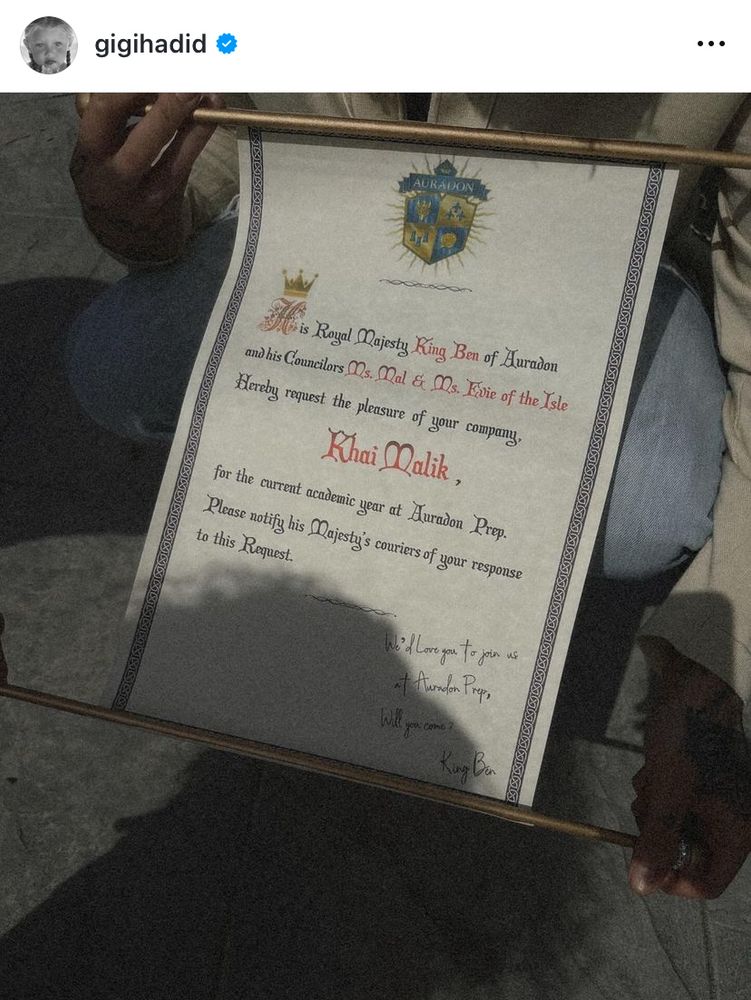 gigihadid
AURADON
His Royal Majesty King Ben of Auradon
and his Councilors Ms. Mal & Ms. Evie of the Isle
Hereby request the pleasure of your company,
Khai Malik ,
for the current academic year at Auradon Prep.
Please notify his Majesty's couriers of your response
to this Request.
We'd Love you to join us
at Auradon Prep,
Will you come?
King Ben